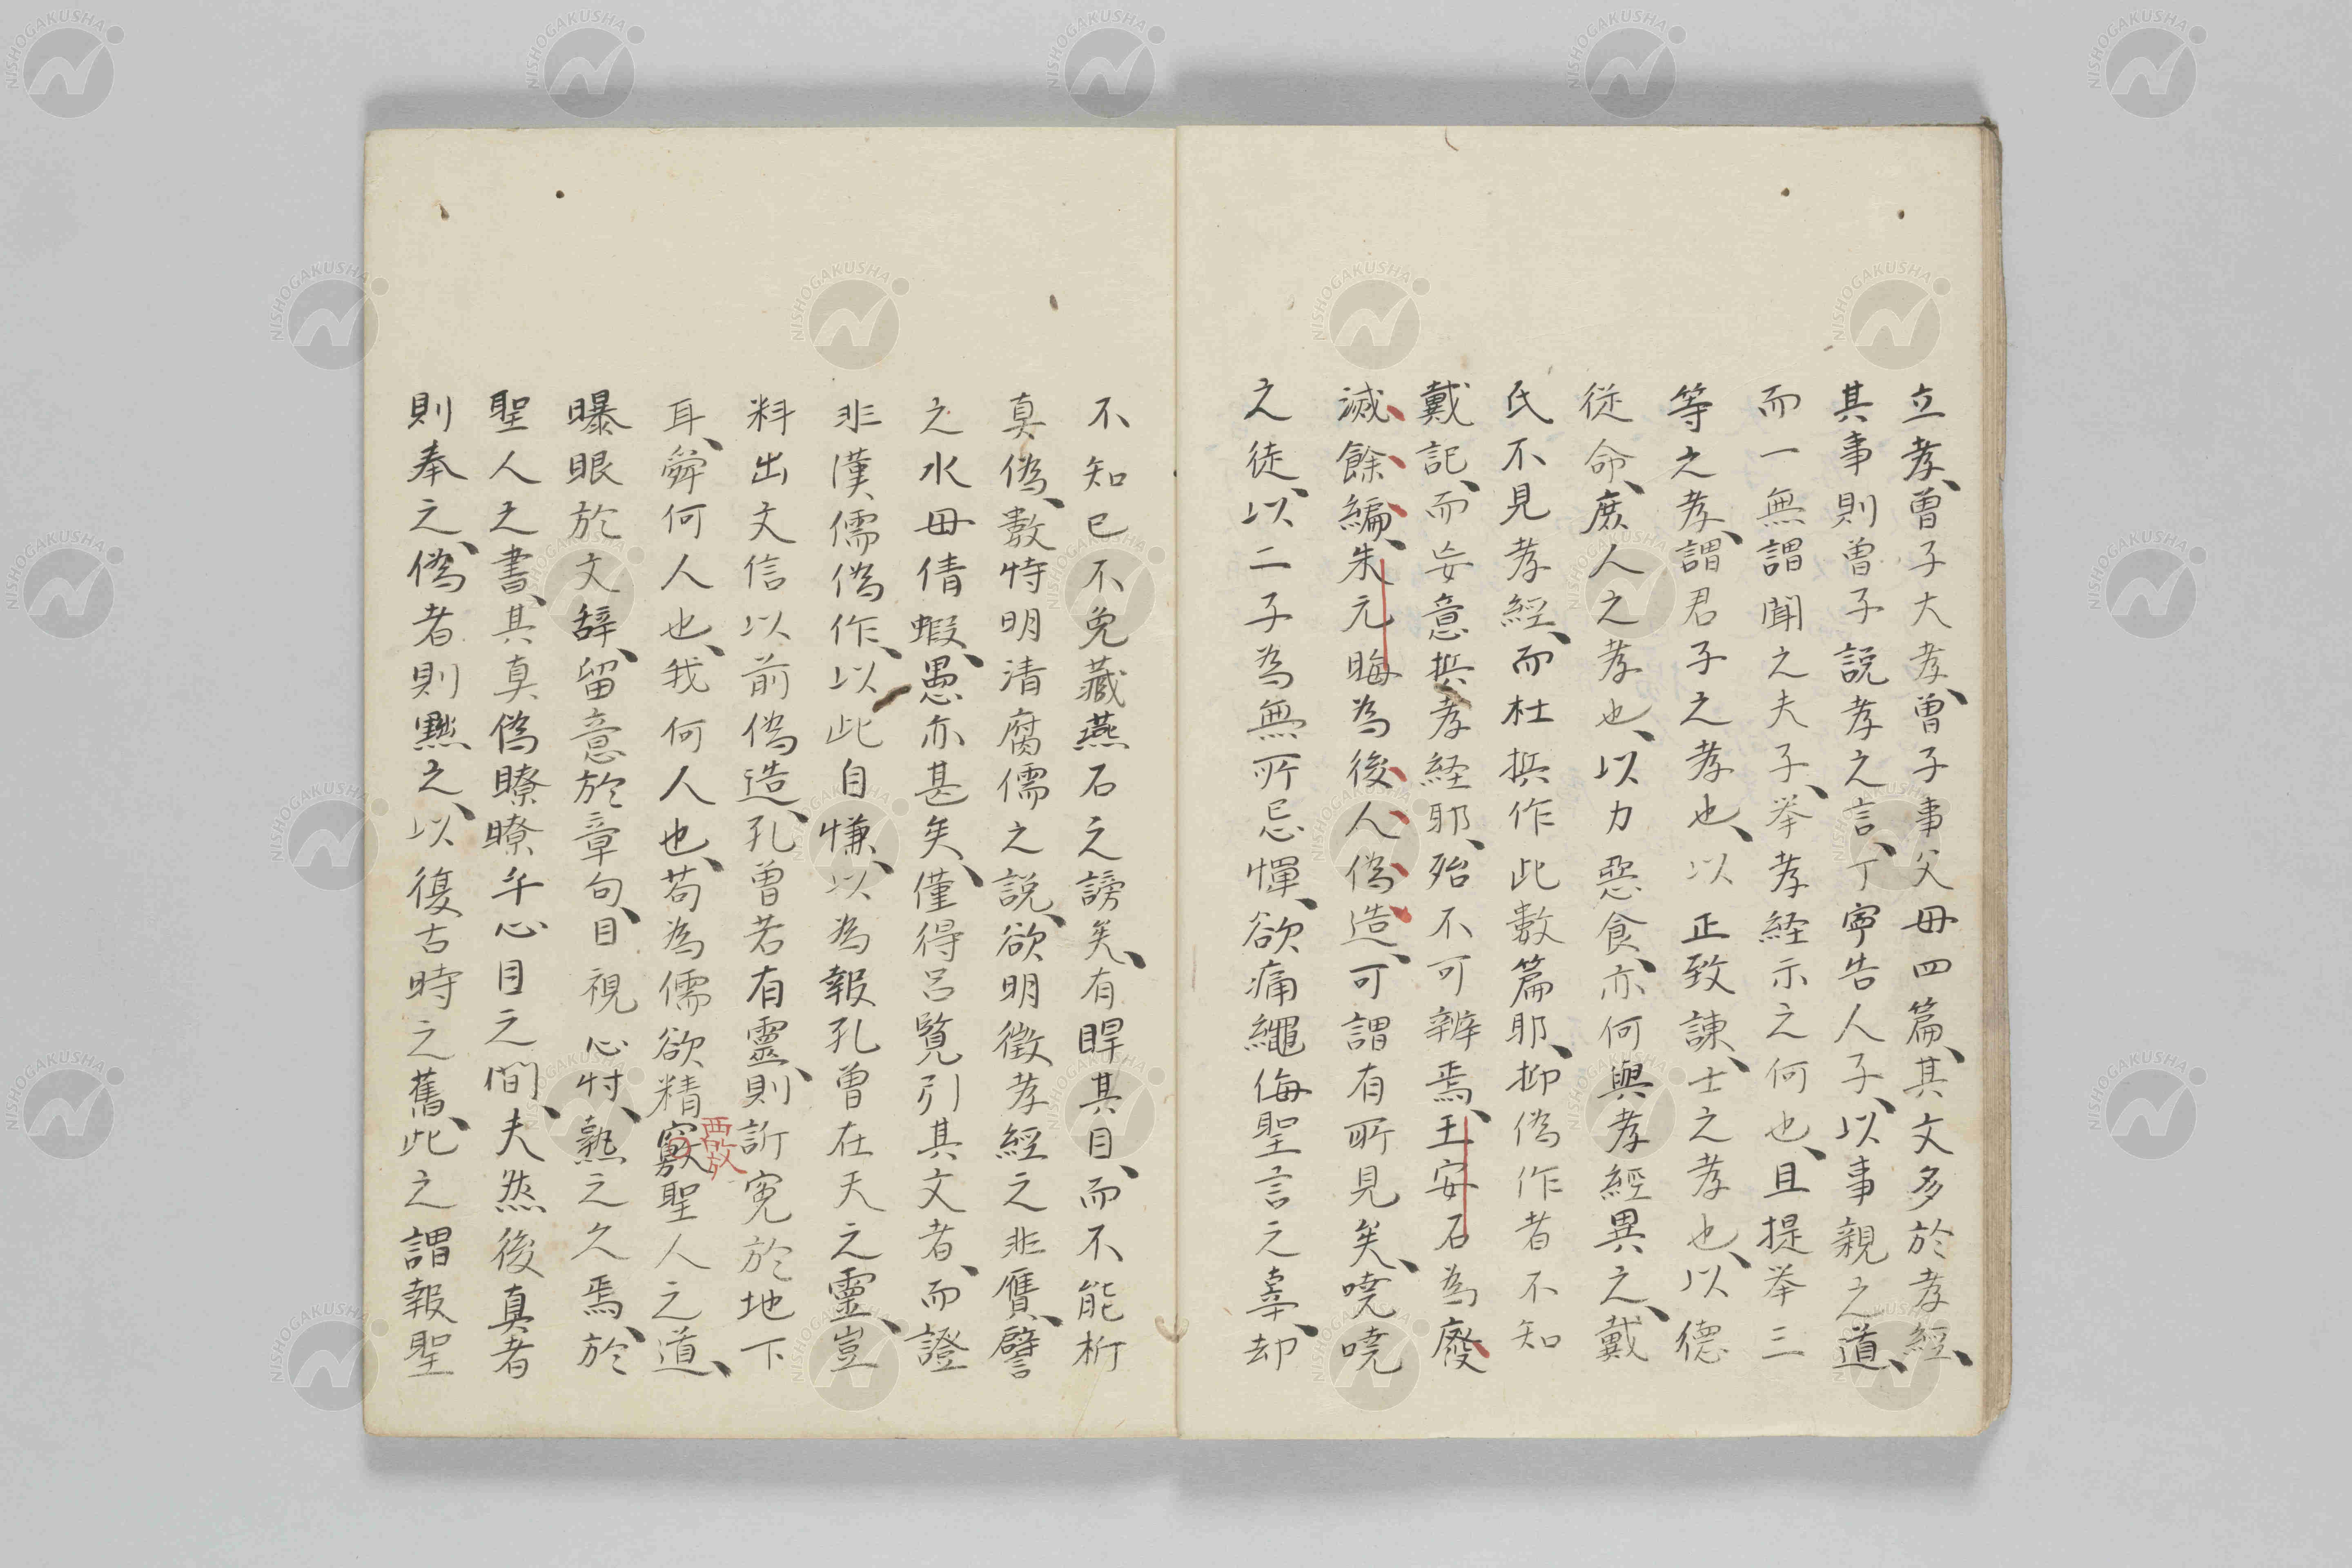 立孝、曽子大孝、曽子事父母四篇、其文多於孝經、
其事則曽子説孝之言、丁寧告人子、以事親之道、
而一無謂聞之夫子、挙孝経示之何也、且提挙三
等之孝、謂君子之孝也、以正致諌、士之孝也、以德
従命、庶人之孝也、以力惡食、亦何與孝經異之、戴
氏不見孝經、而杜撰作此數篇耶、抑偽作者不知
戴記、而妄意撰孝経耶、殆不可辨焉、王安石為廢
滅餘編、朱元晦為後人偽造、可謂有所見矣、嘵嘵
之徒、以二子為無所忌憚、欲痛繩侮聖言之辜、却
不知已不免藏燕石之謗矣、有睅其目、而不能析
真偽、數特明清腐儒之説、欲明徵孝經之非贋、譬
之水母倩蝦、愚亦甚矣、僅得呂覧引其文者、而證
非漢儒偽作、以此自慊、以為報孔曽在天之靈、豈
料出文信以前偽造、孔曽若有靈、則訴寃於地下
耳、舜何人也、我何人也、苟為儒欲精竅聖人之道、
覈
曝眼於文辞、留意於章句、目視心忖、熟之久焉、於
聖人之書、其真偽瞭瞭乎心目之間、夫然後真者
則奉之、偽者則黜之、以復古時之舊、此之謂報聖